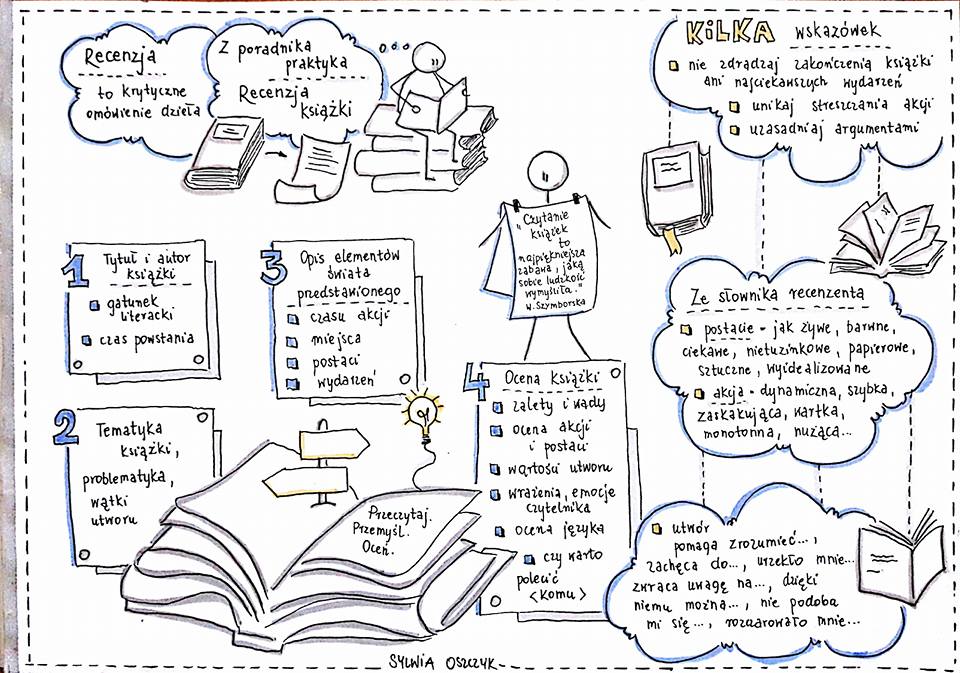 Recenzja
to krytyczne
omówienie dzieła
Z poradnika
praktyka
Recenzja
książki
KILKA wskazówek
nie zdradzaj zakończenia książki
ani najciekawszych wydarzeń
unikaj streszczania akcji
uzasadniaj argumentami
"Czytanie
książek
to
najpiękniejsza
zabawa, jaką
sobie ludzkość
wymyśliła."
W. Szymborska
1
Tytuł i autor
książki
gatunek
literacki
czas powstania
2
Tematyka
książki,
problematyka,
wątki
utworu
3
Opis elementów
świata
przedstawionego
czasu akcji
miejsca
postaci
wydarzeń
4
Ocena książki
zalety i wady
ocena akcji
i postaci
wartości utworu
wrażenia, emocje
czytelnika
ocena języka
czy warto
polecić
<komu>
Przeczytaj.
Przemyśl.
Oceń.
Ze słownika recenzenta
postacie - jak żywe, barwne,
ciekawe, nietuzinkowe, papierowe,
sztuczne, wyidealizowane
akcja - dynamiczna, szybka,
zaskakująca, wartka,
monotonna, nużąca...
utwór
pomaga zrozumieć...,
zachęca do..., urzekło mnie...
zwraca uwagę na..., dzięki
niemu można..., nie podoba
mi się..., rozczarowało mnie...
SYLWIA OSZCZYK